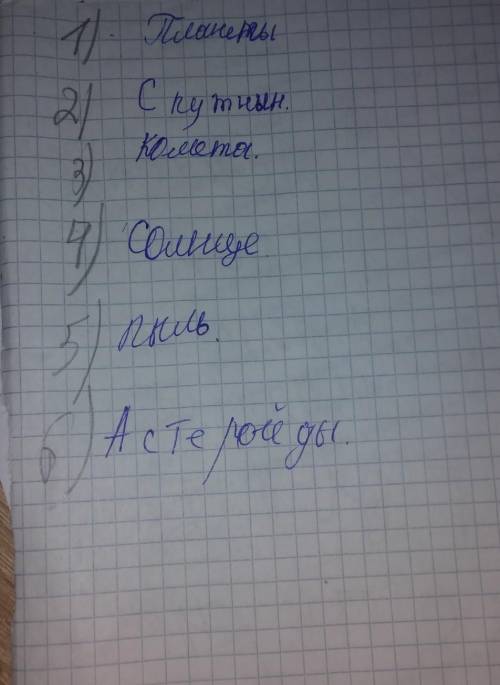 1) Планеты
2) Спутнын.
3) комета.
4) Солнце
5) пыль.
6) Астеройды.